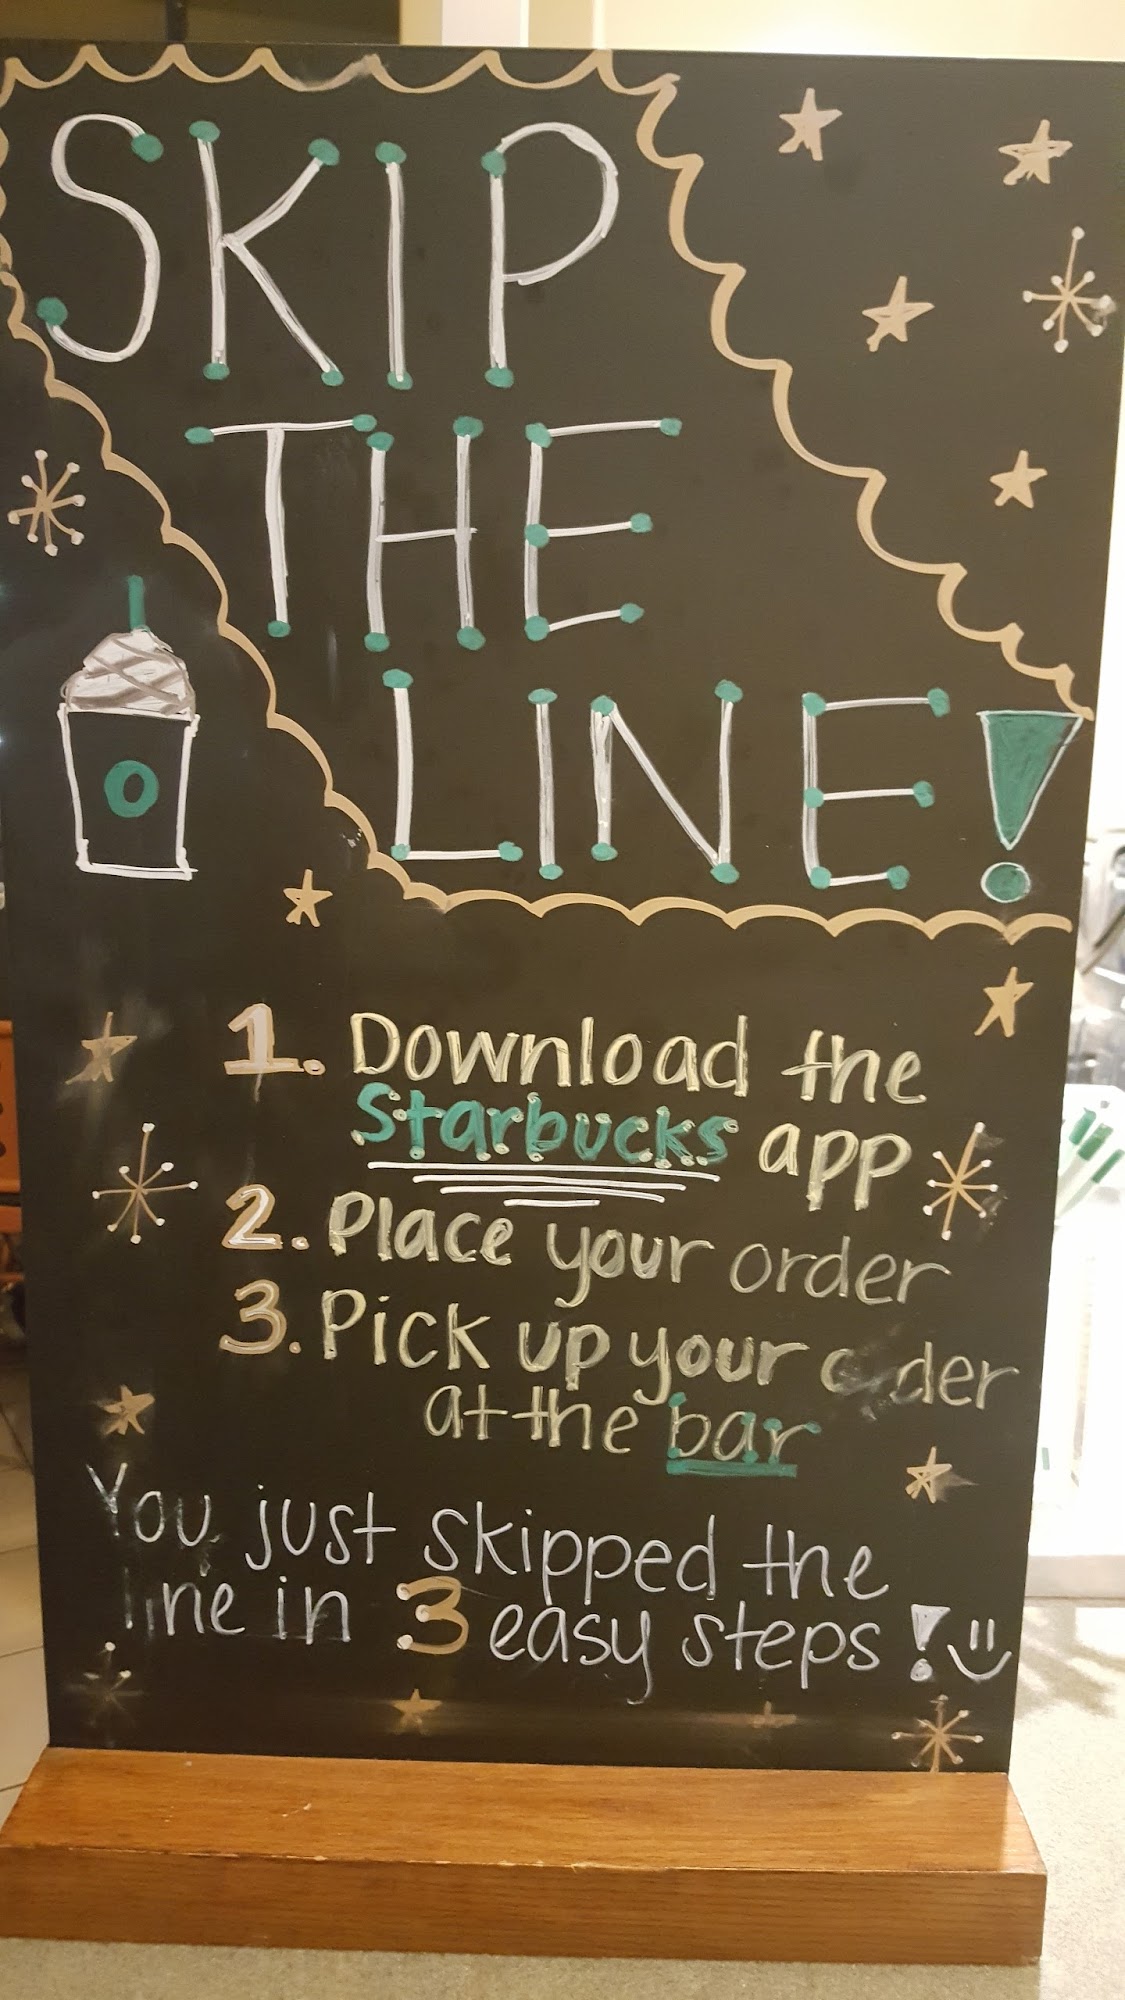 SKIP
THE
LINE!
1. Download the
Starbucks app
2. Place your order
3. Pick up your order
at the bar
You just skipped the
line in 3 easy steps!